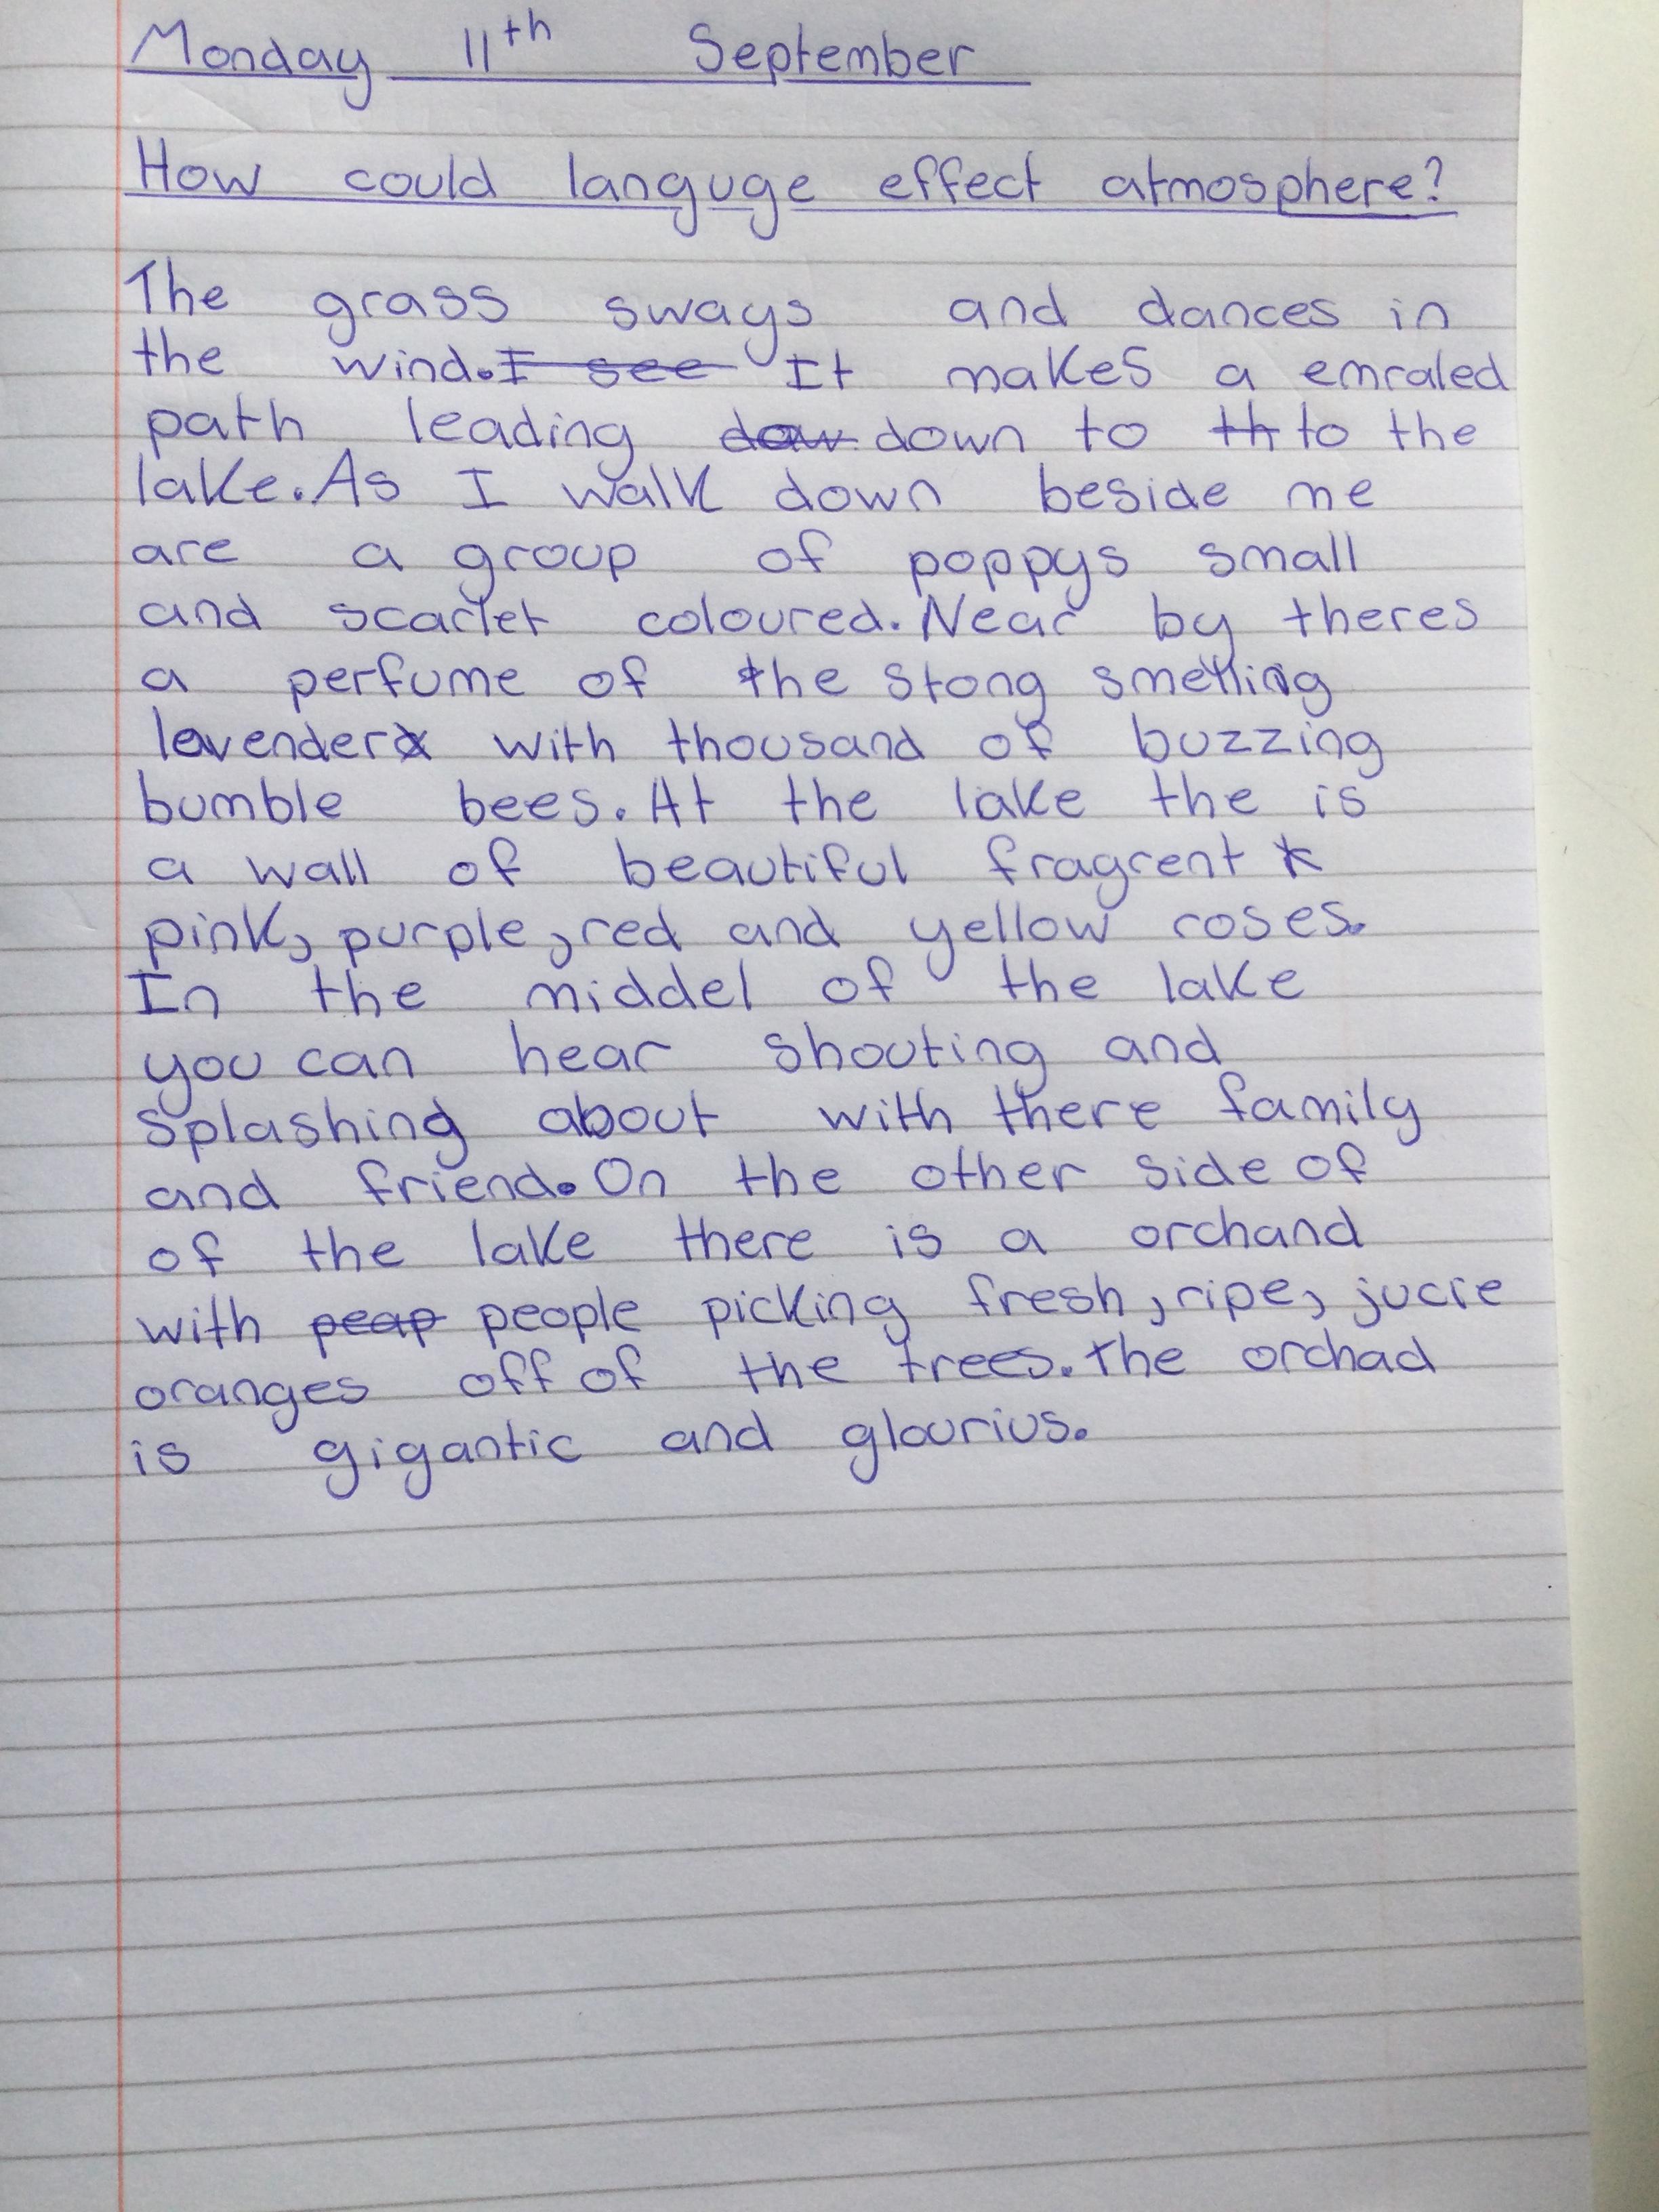 Monday 11th September
How could languge effect atmosphere?
The grass sways and dances in
the wind. I see It makes a emraled
path leading dow down to th to the
lake. As I walk down beside me
are a group of poppys small
and scarlet coloured. Near by theres
a perfume of the stong smelling
lavender with thousand of buzzing
bumble bees. At the lake the is
a wall of beautiful fragrent
pink, purple, red and yellow roses.
In the middel of the lake
you can hear shouting and
splashing about with there family
and friend. On the other side of
of the lake there is a orchand
with peap people picking fresh, ripe, jucie
oranges off of the trees. The orchad
is gigantic and glourius.